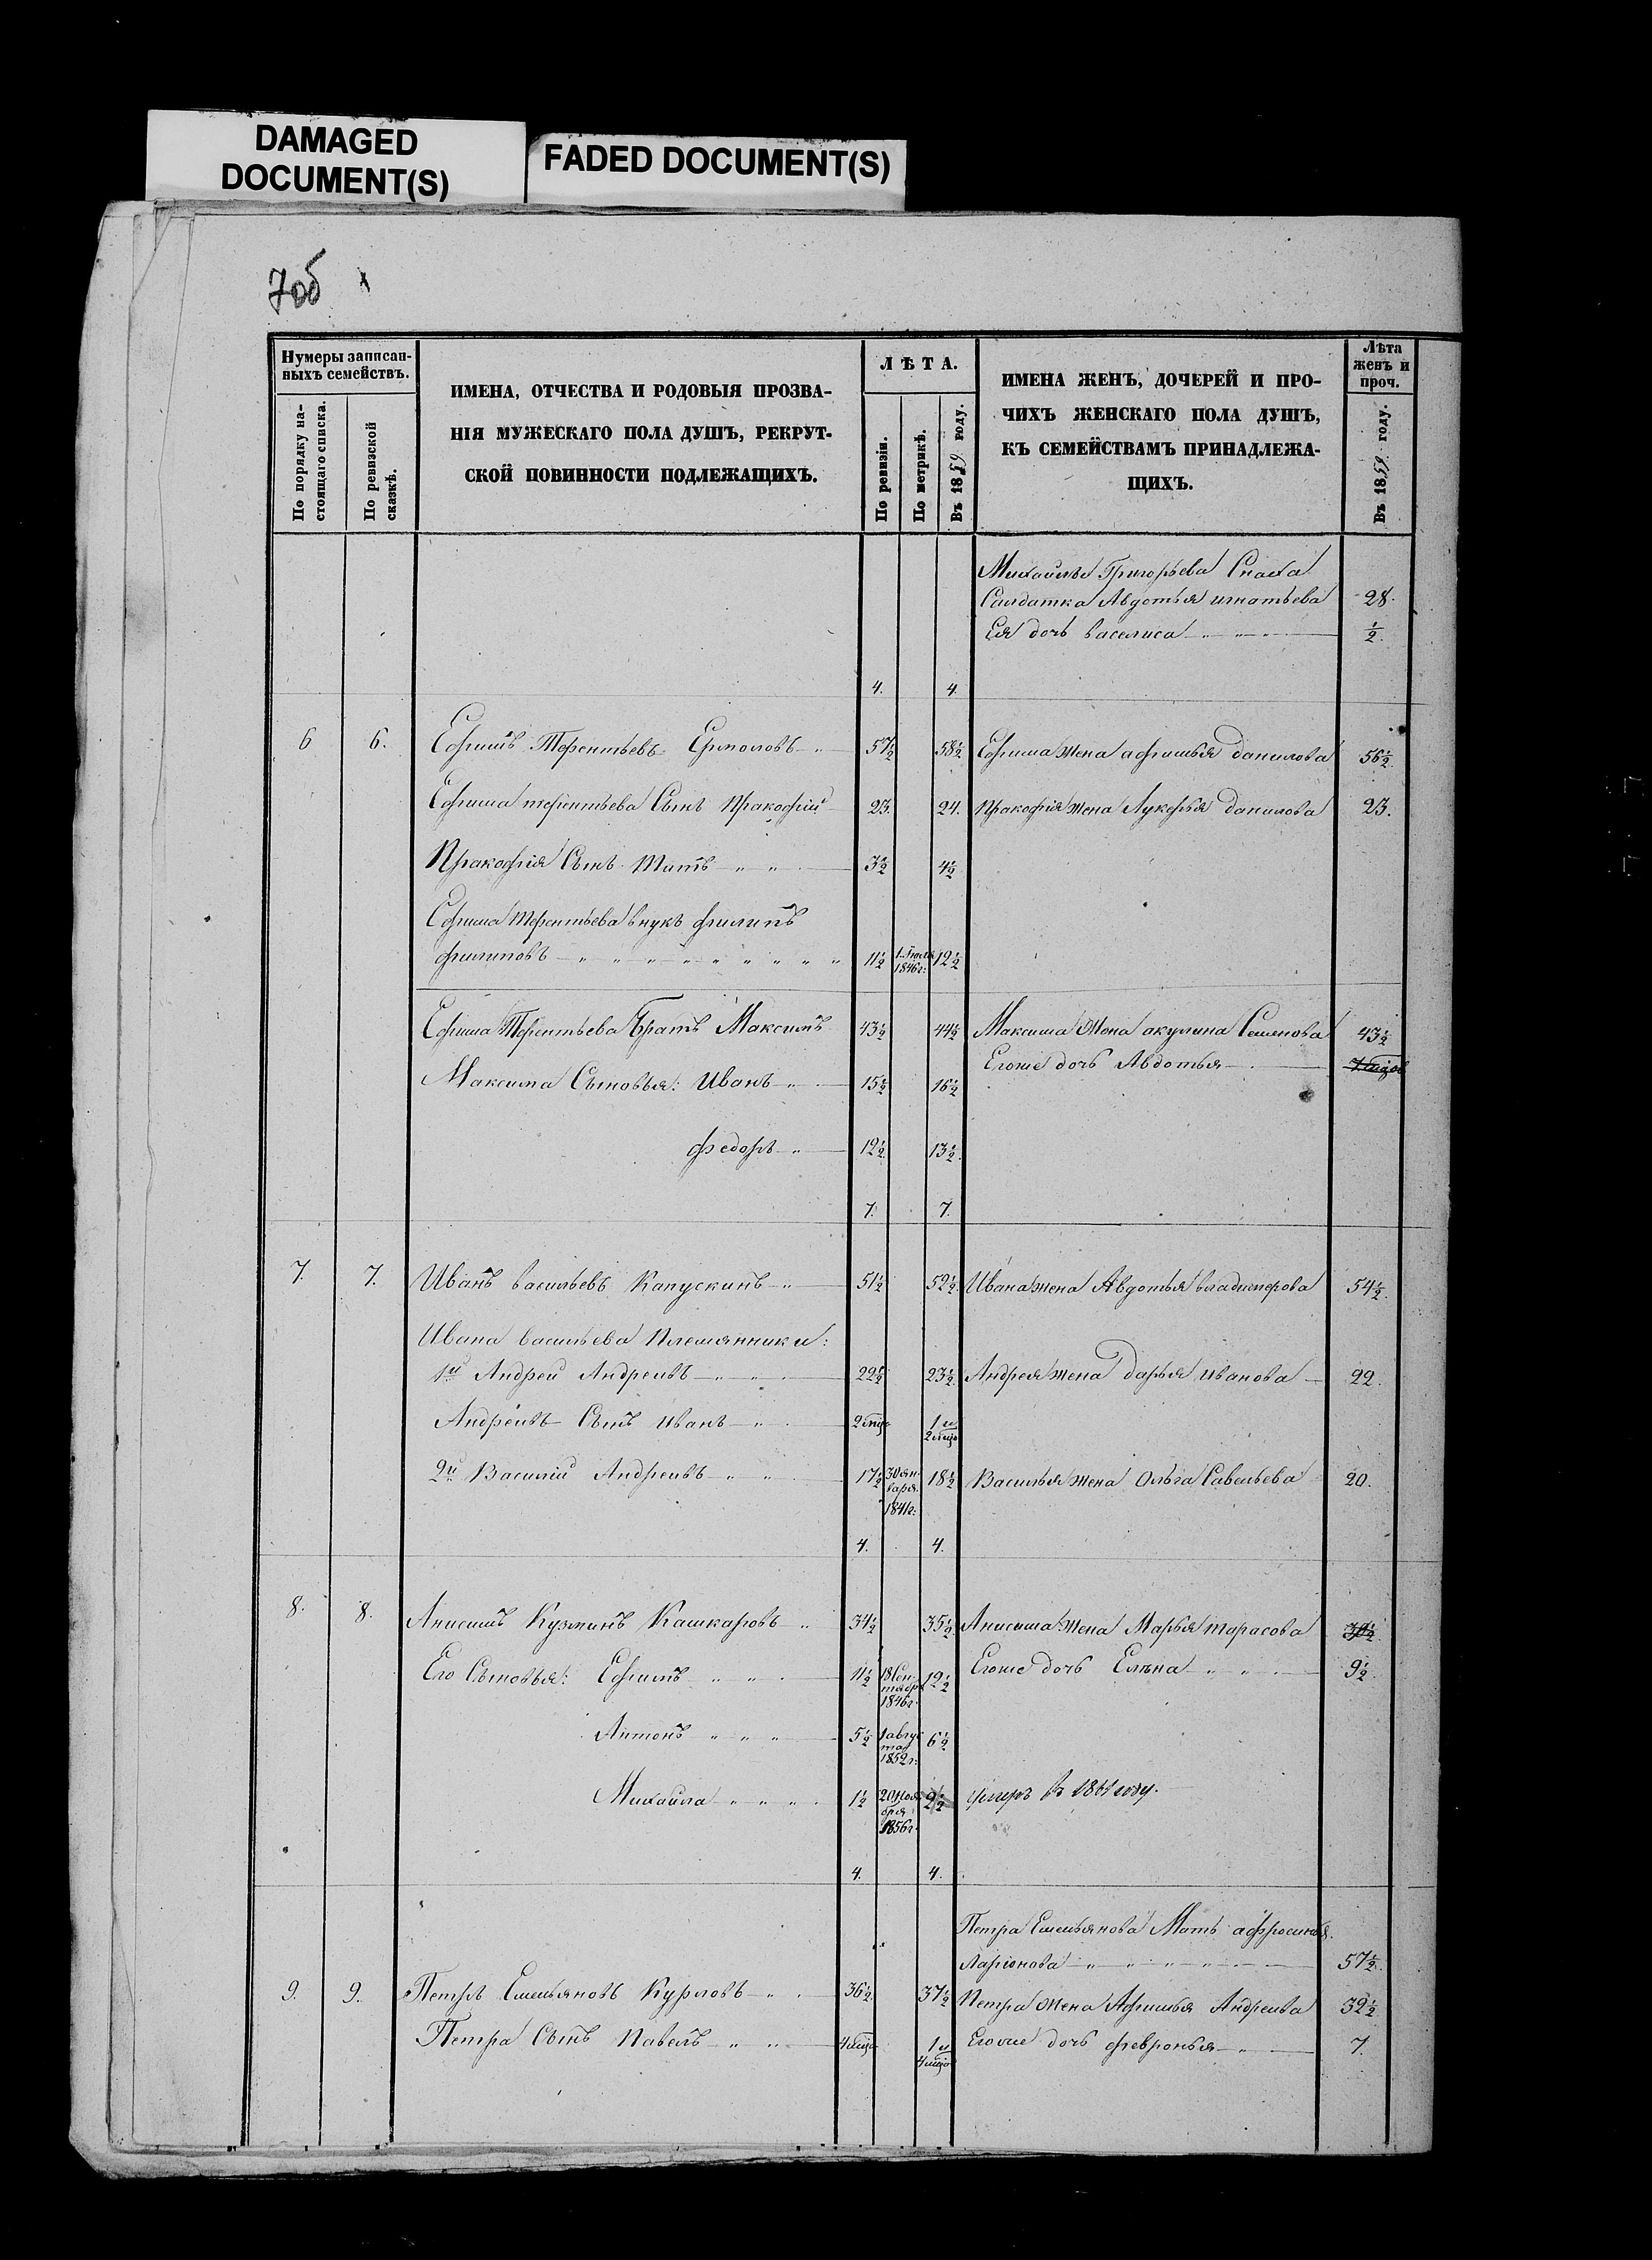 DAMAGED
DOCUMENT(S)
FADED DOCUMENT(S)
7об
Нумеры записан-
ныхъ семействъ.
По порядку на-
стоящаго списка.
По ревизской
сказкѣ.
ИМЕНА, ОТЧЕСТВА И РОДОВЫЯ ПРОЗВА-
НІЯ МУЖЕСКАГО ПОЛА ДУШЪ, РЕКРУТ-
СКОЙ ПОВИННОСТИ ПОДЛЕЖАЩИХЪ.
ЛѢТА.
По ревизіи.
По метрикѣ.
Въ 1859 году.
ИМЕНА ЖЕНЪ, ДОЧЕРЕЙ И ПРО-
ЧИХЪ ЖЕНСКАГО ПОЛА ДУШЪ,
КЪ СЕМЕЙСТВАМЪ ПРИНАДЛЕЖА-
ЩИХЪ.
Лѣта
женъ и
проч.
Въ 1859 году.
Михайлы Григорьева Сноха
Салдатка Авдотья игнатьева 28.
Ея дочь василиса ½.
4. 4.
6 6. Ефимъ Терентьевъ Ермоловъ 57½ 58½ Ефима жена афимья данилова 56½.
Ефима терентьева Сынъ Пракофій 23. 24. Пракофія жена Лукерья данилова 23.
Пракофія Сынъ Титъ 3½ 4½
Ефима Терентьева внукъ филипъ
филиповъ 11½ 1 Іюля 1846г: 12½
Ефима Терентьева братъ Максимъ 43½ 44½ Максима Жена акулина Семенова 43½
Егоже дочь Авдотья
Максима Сыновья: Иванъ 15½ 16½
федоръ 12½ 13½.
7. 7.
7. 7. Иванъ васильевъ Капускинъ 51½ 52½. Ивана жена Авдотья владимерова 54½.
Ивана васильева Племянники:
1й Андрей Андреивъ 22½ 23½. Андрея жена дарья иванова 22.
Андреивъ Сынъ иванъ 2 мѣся 1 и 2 мѣся
2й Василій Андреивъ 17½ 30 ян-варя 1841г: 18½ Василья жена Ольга Савельева 20.
4. 4.
8. 8. Анисимъ Кузминъ Кашкаровъ 34½ 35½. Анисима жена Марья тарасова 30½
Его Сыновья: Ефимъ 11½ 18 Сен-тября 1846г. 12½ Егоже дочь Елѣна 9½.
Антонъ 5½ 1 авгус та 1852г: 6½
Михайла 1½ 20 ноя бря 1856г. 2½ умеръ въ 1861 году.
4. 4.
Петра Емельянова Мать афросинья
Ларіонова 57½.
9. 9. Петръ Емельяновъ Курловъ 36½. 37½ Петра жена Афимья Андреива 32½
Петра Сынъ Павелъ 4 мѣся 1 и 4 мѣся Егоже дочь февронья 7.